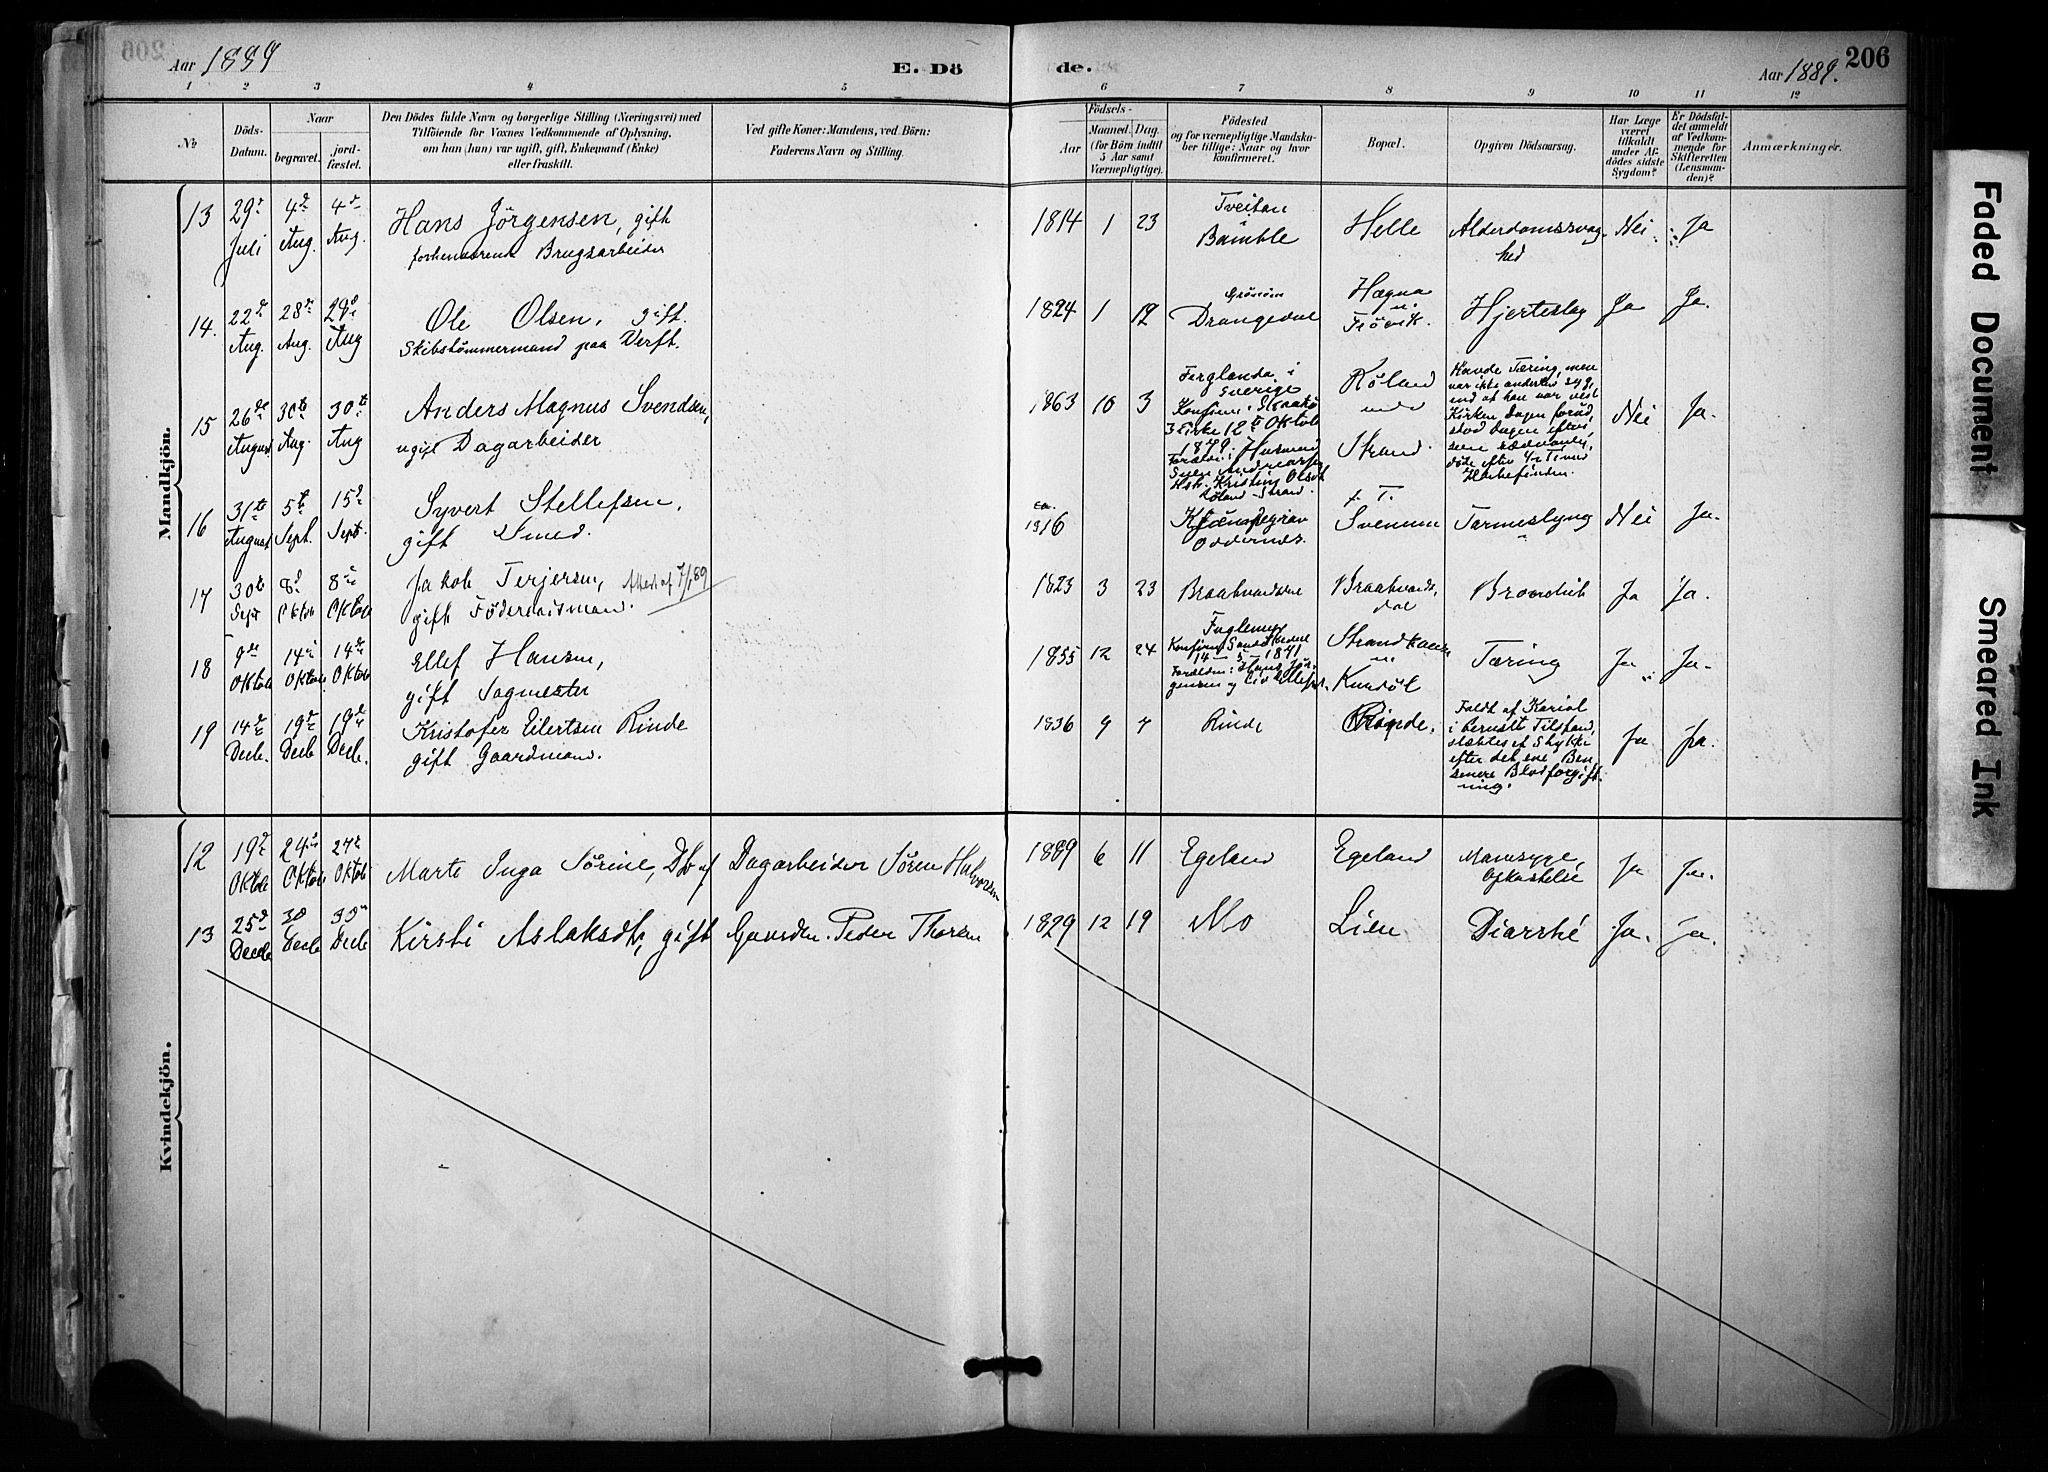 206
Aar 1889
E. Dö
de.
Aar 1889.
206
1 2 3 4 5 6 7 8 9 10 11 12
№
Döds-
Datum.
Naar
begravet.
jord-
fæstet.
Den Dödes fulde Navn og borgerlige Stilling (Næringsvei) med
Tilföiende for Voxnes Vedkommende af Oplysning,
om han (hun) var ugift, gift, Enkemand (Enke)
eller fraskilt.
Ved gifte Koner: Mandens, ved Börn:
Faderens Navn og Stilling.
Födsels-
Aar
Maaned. Dag.
(for Börn indtil
5 Aar samt
Værnepligtige).
Födested
og for værnepligtige Mandska-
ber tillige: Naar og hvor
konfirmeret.
Bopæl.
Opgiven Dödsaarsag.
Har Læge
været
tilkaldt
under Af-
dödes sidste
Sygdom?
Er Dödsfal-
det anmeldt
af Vedkom-
mende for
Skifteretten
(Lensman-
den)?
Anmærkninger.
Mandkjön.
13 29de Juli 4de Aug. 4de Aug.
Hans Jörgensen, gift
forhenværende Brugsarbeider
1814 1 23
Tveitan
i
Bamble
Helle
Alderdomssvag-
hed
Nei Ja
14. 22de Aug. 28de Aug. 29de Aug
Ole Olsen, gift.
Skibstömmermand paa Verft.
1824 1 17
Drangedal
Hægna
u.
Frövik.
Hjerteslag
Ja Ja.
15 26de August 30te Aug. 30te Aug
Anders Magnus Svendsen,
ugift Dagarbeider
1863 10 3
Ferglanda i
Sverige
Konfirm. i Skaatö
Kirke 12te Oktob
1879. Husmand
Kristine Olsdt
Röland Strand.
Röland
under
Strand.
Havde Tæring, men
var ikke anderledes syg,
end at han var ved
Kirken Dagen forud,
stod Dagen efter
döde efter
Nei Ja.
16 31te August 5te Sept. 15de Sept.
Syvert Stellefsen,
gift Smed.
ca.
1816
Oddernes.
Svenum
Tarmeslyng
Nei Ja.
17 30te Sept 8de Oktob 8de Oktob
Jakob Terjersen,
gift Föderaadsmand.
1823 3 23
Braatvandsdal
Braatvands-
dal
Ja Ja.
18 9de Oktob 14de Oktob 14de Oktob
Ellef Hansen,
gift Sagmester
1855 12 24
Fuglemyr
14 - 5 - 1871
Forældre: Hans Jör-
gensen og Liv Ellefsdt.
Kurdöl
Tæring
Ja Ja-
19 14de Decb. 19de Decb 19de Decb.
Kristofer Eilertsen Rinde
gift Gaardmand.
1836 9 7
Rinde
Rinde.
Faldt af Kariol
i beruset Tilstand,
slæbtes et Stykke
efter det ene Ben
senere Blodforgift-
ning.
Ja Ja.
Kvindekjön.
12 19de Oktob 24de Oktob 27de Oktob
Marte Inga Sörine, Db af Dagarbeider Sören Halvorsen
1889 6 11
Egeland
Egeland
Mavesyge,
Opkastelse
Ja Ja.
13 25de Decb 30 Decb 30te Decb
Kirsti Aslaksdt, gift Gaardm. Peder Thorsen
1829 12 19
Mo
Lien
Diarrhé
Ja. Ja.
Faded Document
Smeared Ink